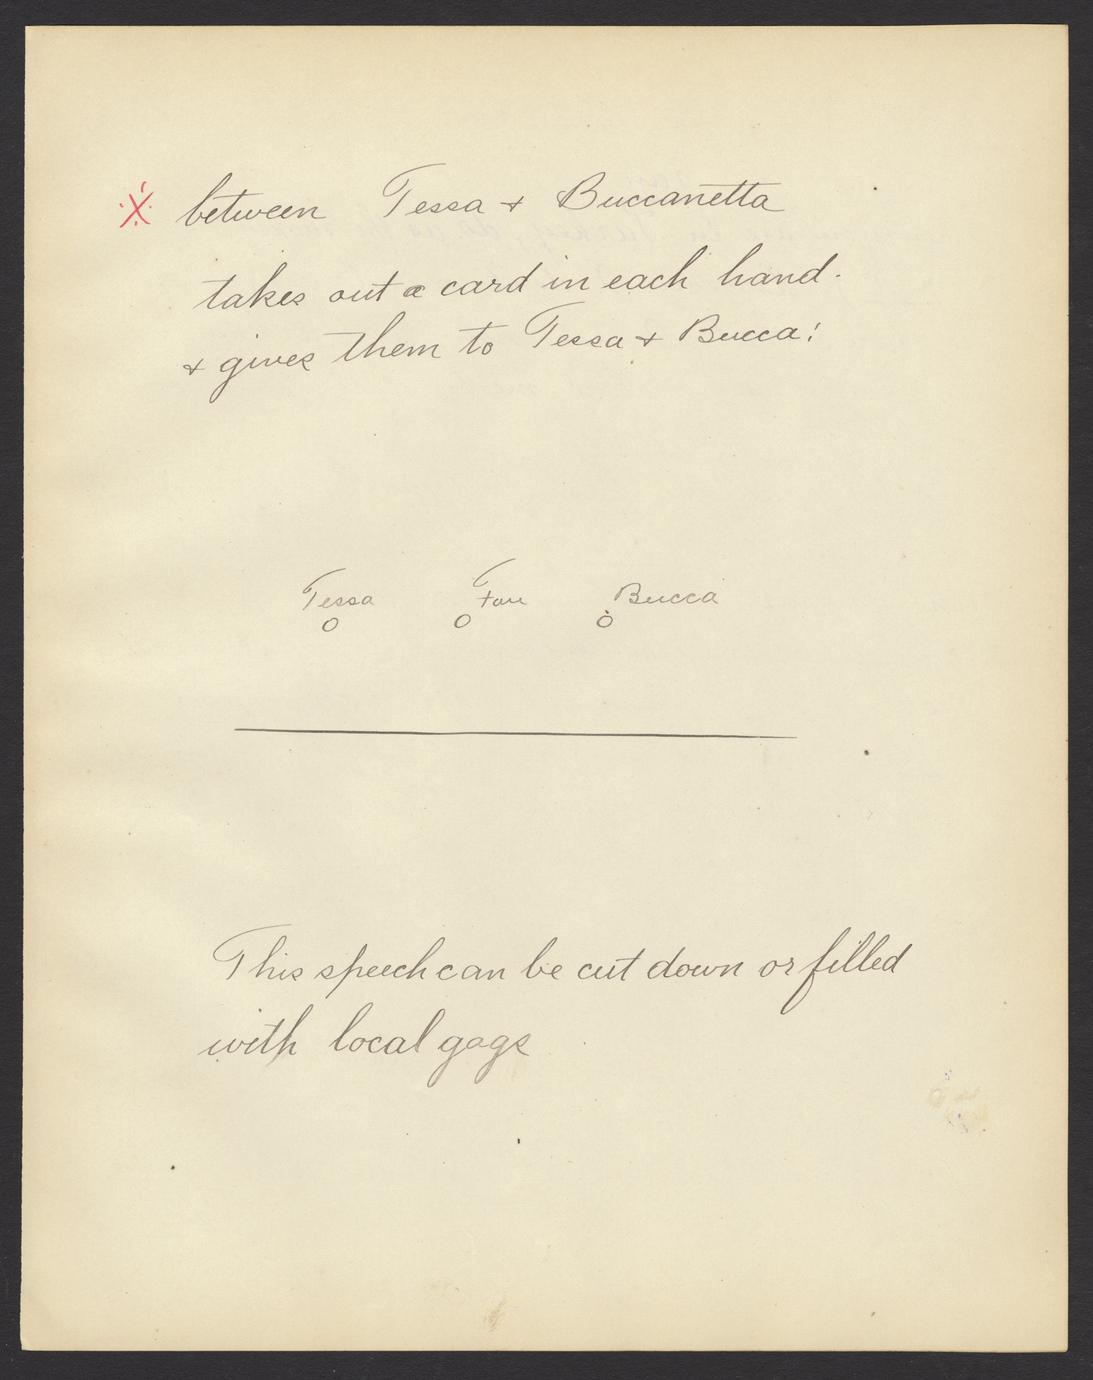 ※ between Tessa & Buccanetta
takes out a card in each hand.
& gives them to Tessa & Bucca!
Tessa Fau Bucca
O O O
This speech can be cut down or filled
with local gags